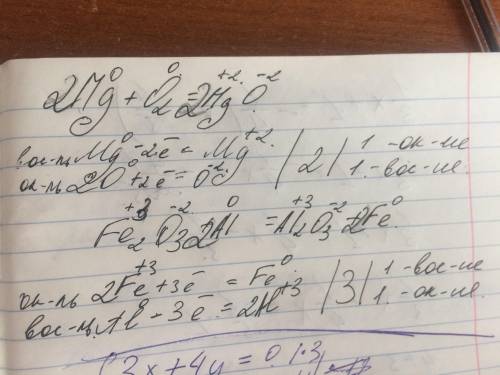 2Mg⁰ + O₂⁰ = 2Mg⁺²O⁻²
вос-ль Mg⁰ - 2ē = Mg⁺² | 2 | 1 - ок-ие
ок-ль 2O⁰ + 2ē = O⁻² 1. - вос-ие.
Fe₂⁺³O₃⁻² 2Al⁰ = Al₂⁺³O₃⁻² + 2Fe⁰
ок-ль 2Fe⁺³ + 3ē = Fe⁰ | 3 | 1 - вос-ие
вос-ль Al⁰ - 3ē = 2Al⁺³ 1. - ок-ие.
3x + 4y = 0,1·3